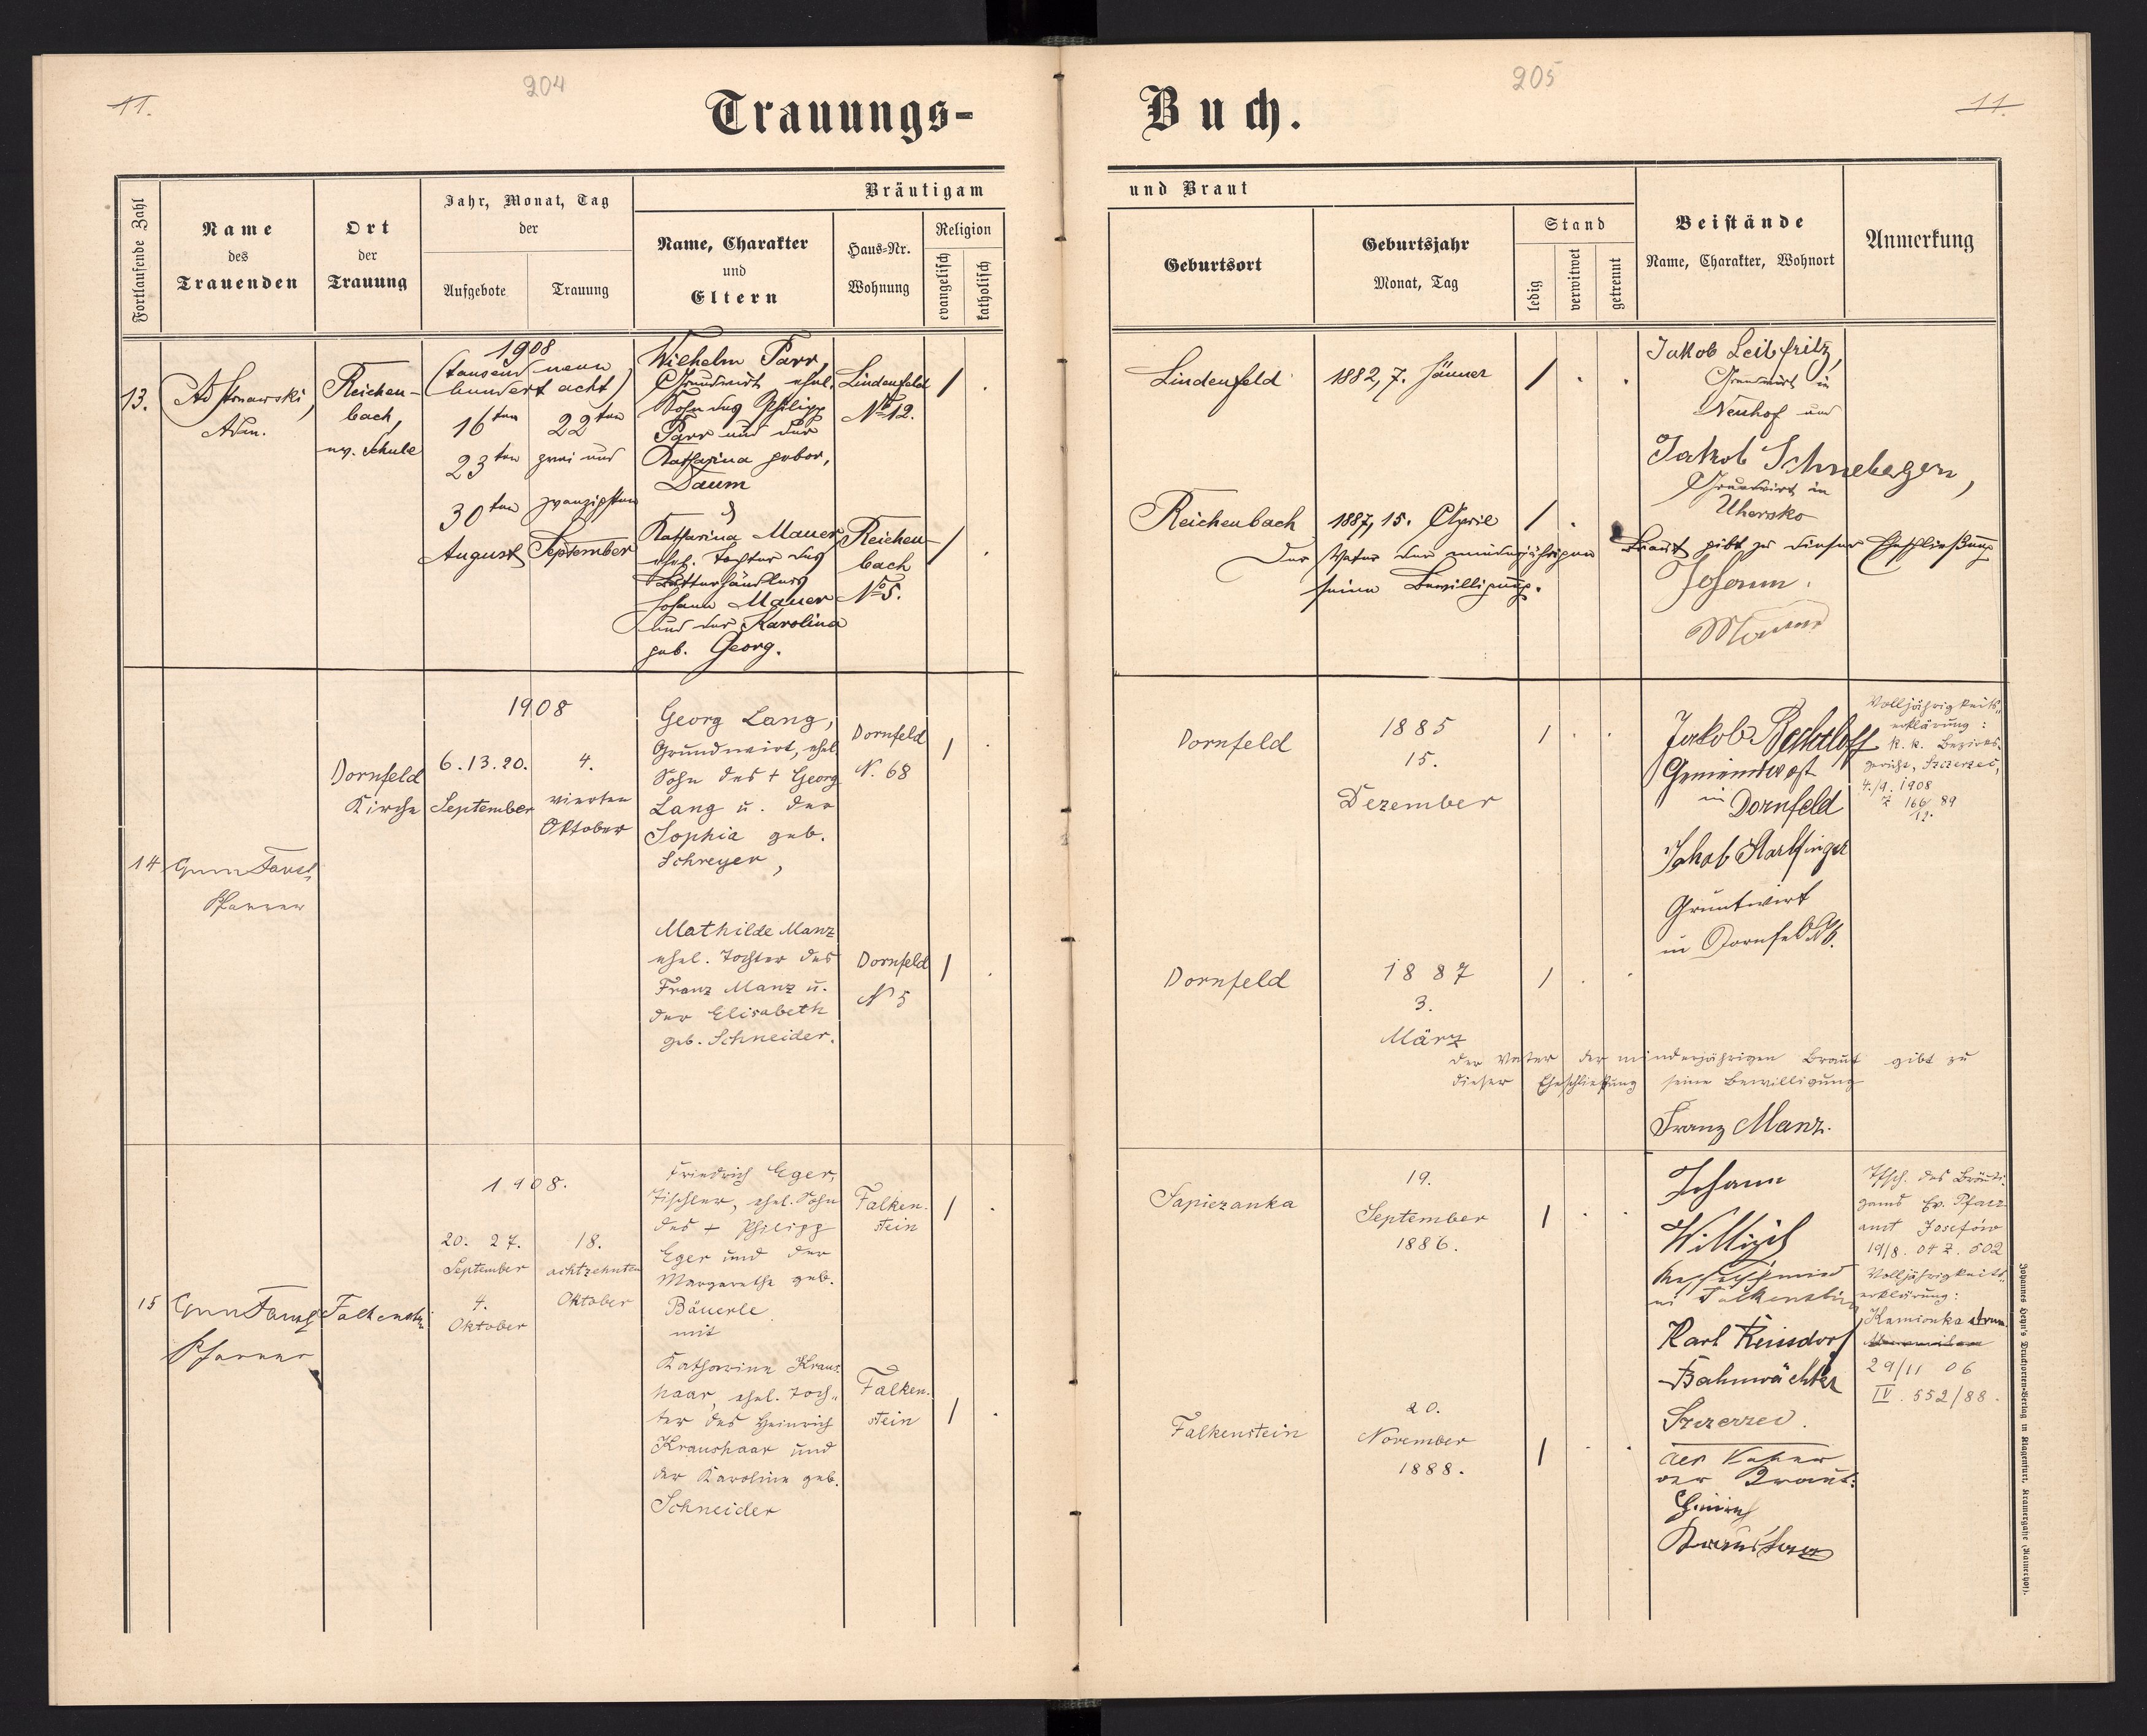 11.
204
Trauungs-
Fortlaufende Zahl
Name
des
Trauenden
Ort
der
Trauung
Jahr, Monat, Tag
der
Aufgebote
Trauung
Bräutigam
Name, Charakter
und
Eltern
Haus-Nr.
Wohnung
Religion
evangelisch
katholisch
13.
Adm.
Reichen-
bach,
ev. Schule
1908
(tausend neun
hundert acht)
16ten
23ten
30ten
August
22ten
zwei und
zwanzigsten
September
Wilhelm Parr,
Grundwirt ehel.
Sohn des Philipp
Parr und der
Katharina gebor,
Daum
&
Katharina Mauer
ehel. Tochter des
Johann Mauer
und der Karolina
geb. Georg.
Lindenfeld
No 12.
Reichen-
bach
No 5.
14
Pfarrer
Dornfeld
Kirche
1908
6. 13. 20.
September
4.
vierten
Oktober
Georg Lang,
Grundwirt, ehel.
Sohn des + Georg
Lang u. der
Sophia geb.
Schreyer,
Dornfeld
N. 68
Mathilde Manz
ehel. Tochter des
Franz Manz u.
der Elisabeth
geb. Schneider.
Dornfeld
N 5
15
Pfarrer
Falkenstein
1908.
20. 27.
September
4.
Oktober
18.
achtzehnten
Oktober
Friedrich Eger,
Tischler, ehel. Sohn
des + Philipp
Eger und der
Margarethe geb.
Bäuerle
mit
Katharina Kraus-
haar, ehel. Toch-
ter des Heinrich
Kraushaar und
der Karoline geb.
Schneider
Falken-
stein
Falken-
stein
205
11.
Buch.
und Braut
Geburtsort
Geburtsjahr
Monat, Tag
Stand
ledig
verwitwet
getrennt
Beistände
Name, Charakter, Wohnort
Anmerkung
Lindenfeld
1882, 7. Jänner
Jakob Leibfritz,
Grundwirt in
Neuhof und
Jakob Schnebegen,
Grundwirt in
Uhersko
Reichenbach
1887, 15. April
Der Vater der minderjährigen Braut gibt zu dieser Eheschließung
seine Bewilligung.
Johann
Mauer
Dornfeld
1885
15.
Dezember
Jakob Bechtloff
in Dornfeld
Jakob
Gruntwirt
in Dornfeld
Volljährigkeits-
erklärung:
k. k. Bezirks-
gericht, Szczerzec,
4./9. 1908
Dornfeld
1887
3.
März
der Vater der minderjährigen Braut gibt zu
dieser Eheschließung seine Bewilligung
Franz Manz.
Sapiezanka
19.
September
1886.
Johann
in Falkenstein
Karl Reissdorf
Bahnwächter
Szczerzec.
der Vater
der Braut:
Heinrich
Kraushaar
Tfsch. des Bräuti-
gams Ev. Pfarr-
amt Josefów
19/8. 04 Z. 502
Volljährigkeits-
erklärung:
Kamionka strum.
29/11 06
IV. 552/88.
Falkenstein
20.
November
1888.
Johannes Heyn's Drucksorten-Verlag in Klagenfurt, Kramergasse